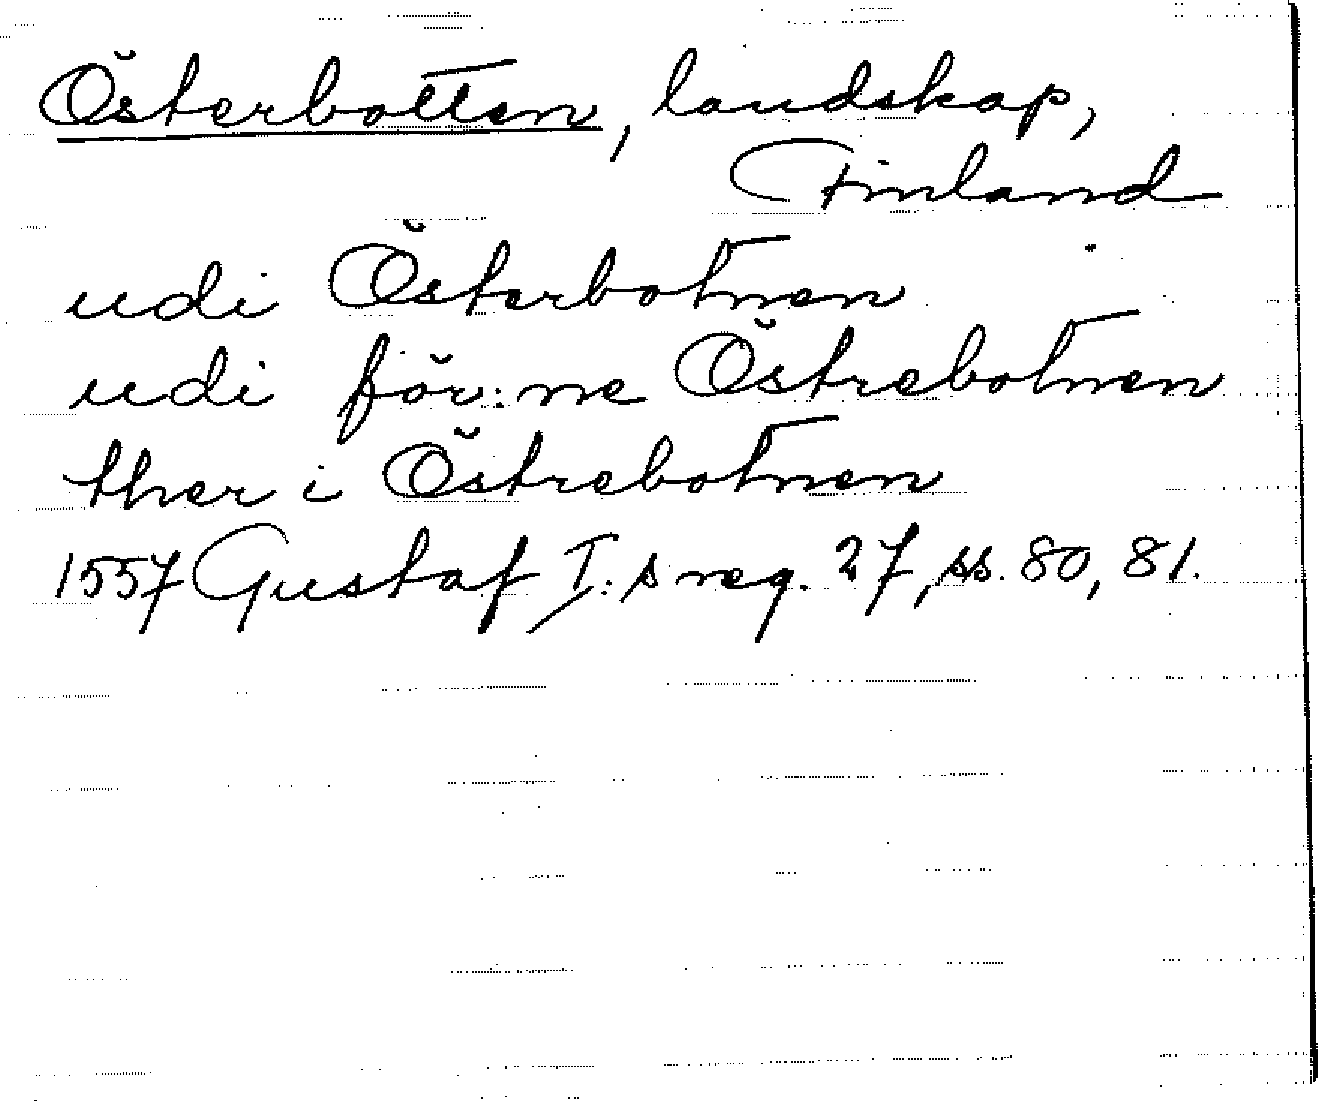 Österbotten, landskap,
Finland
udi Österbotnen
udi för:ne Östrebotnen
ther i Östrebotnen
1557 Gustaf I:s reg. 27, ss. 80, 81.